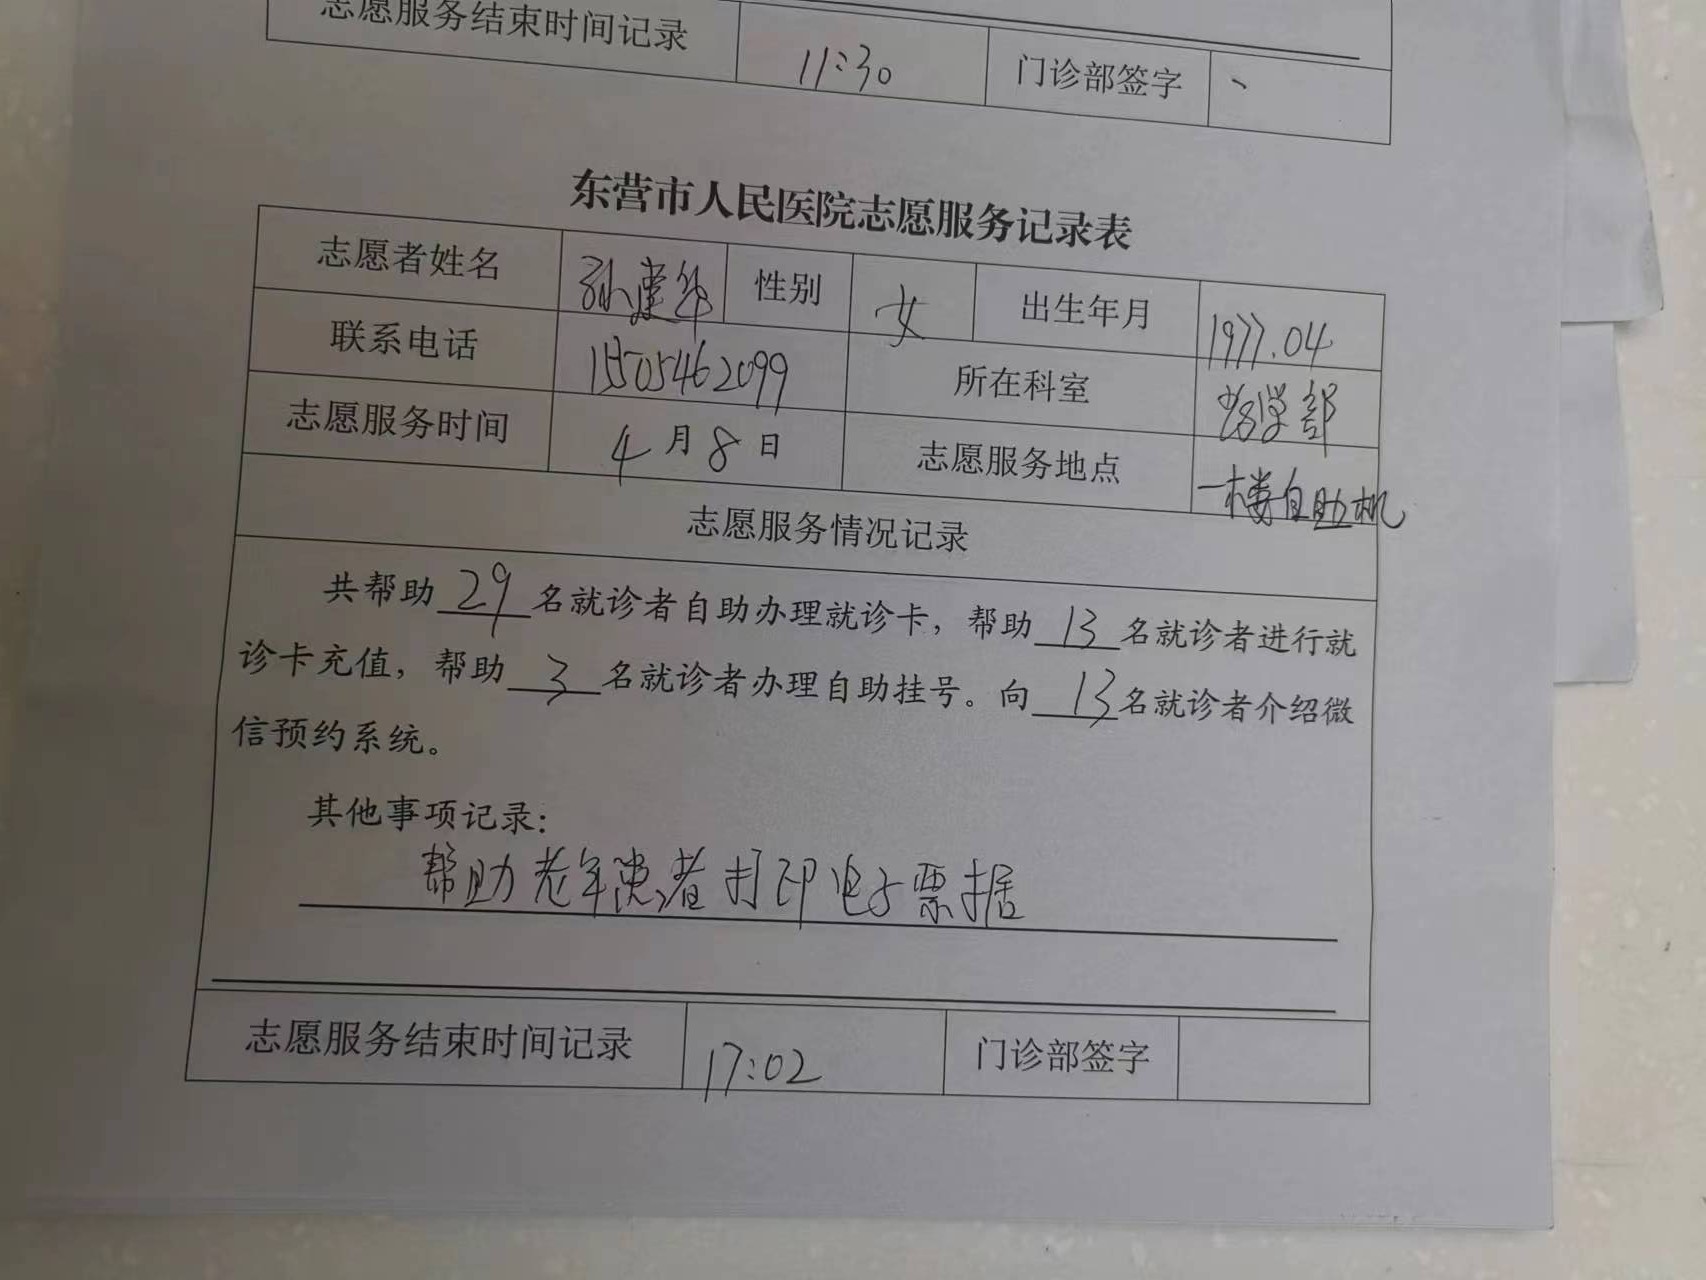 志愿服务结束时间记录 11:30 门诊部签字
东营市人民医院志愿服务记录表
志愿者姓名 孙建华 性别 女 出生年月 1977.04
联系电话 15505462099 所在科室 药学部
志愿服务时间 4月8日 志愿服务地点 一楼自助机
志愿服务情况记录
共帮助29名就诊者自助办理就诊卡，帮助13名就诊者进行就
诊卡充值，帮助3名就诊者办理自助挂号。向13名就诊者介绍微
信预约系统。
其他事项记录：
帮助老年患者打印电子票据
志愿服务结束时间记录 17:02 门诊部签字